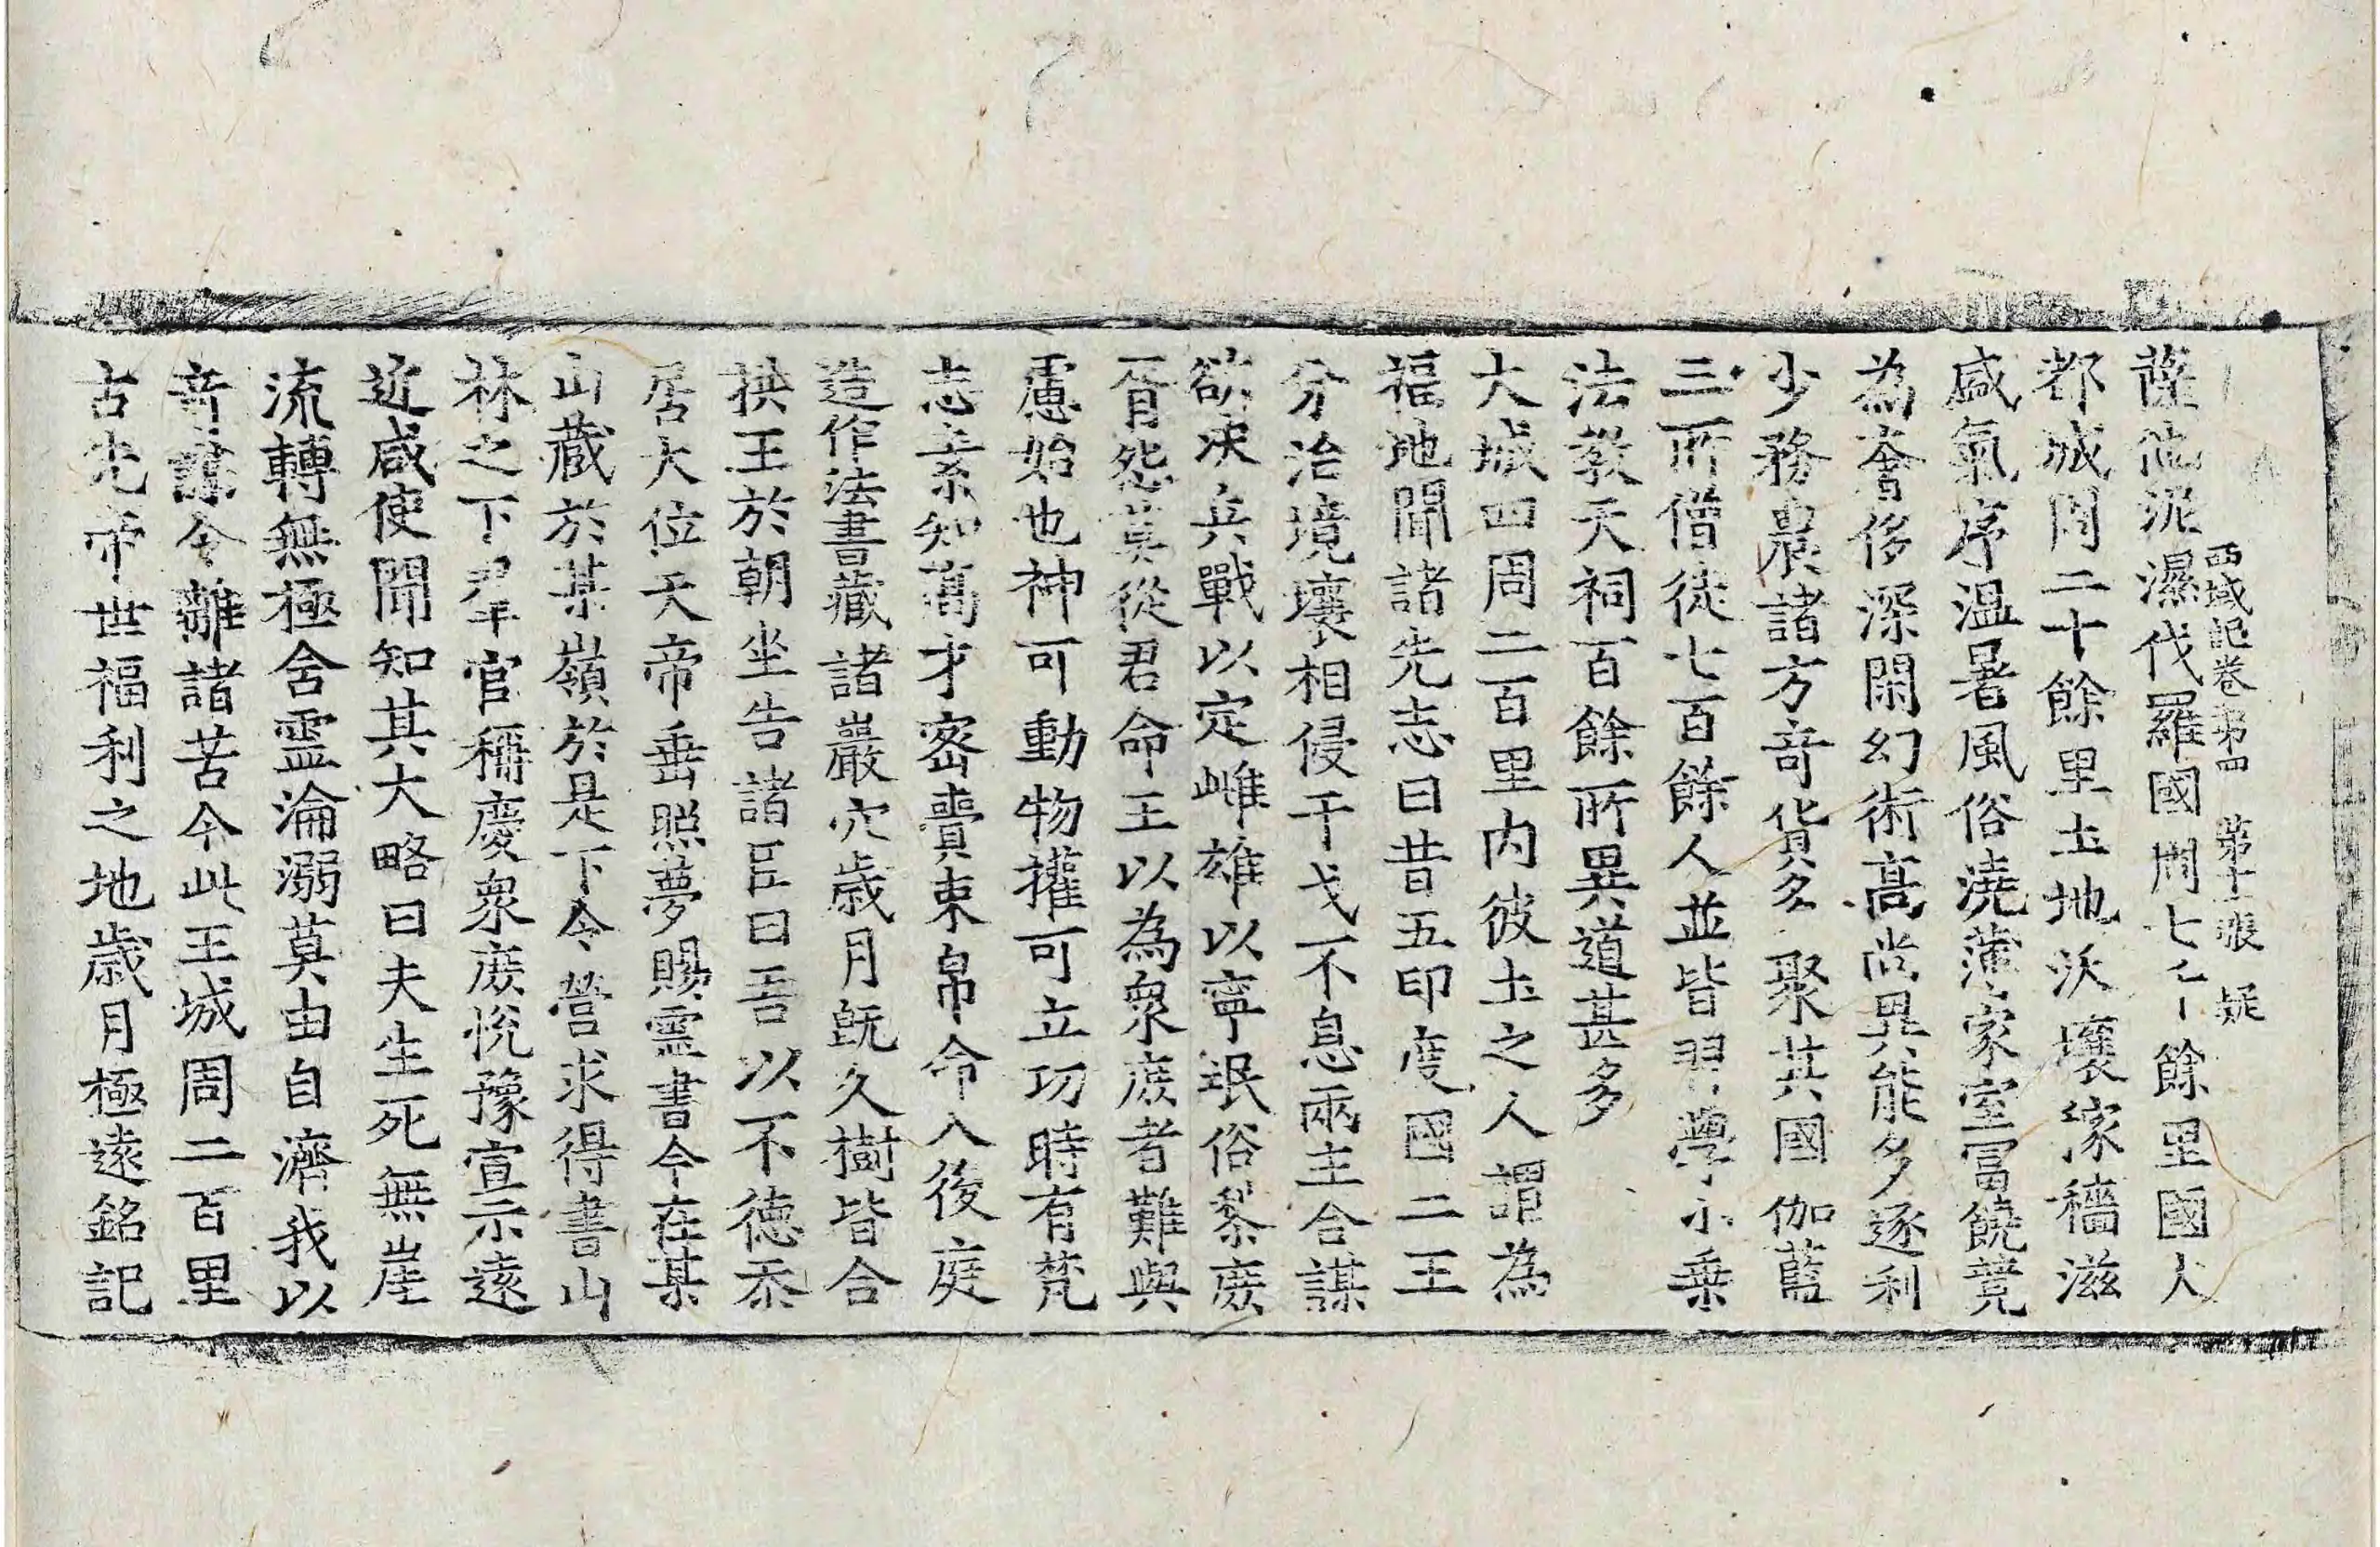 西域記卷第四 第十一張 疑
薩他泥濕伐羅國周七千餘里國大
都城周二十餘里土地沃壤稼穡滋
盛氣序温暑風俗澆薄家室冨饒競
為奢侈深閑幻術髙尚異能多逐利
少務農諸方竒貨多聚其國伽藍
三所僧徒七百餘人並皆習學小乗
法教天祠百餘所異道甚多
大城四周二百里内彼土之人謂為
福地聞諸先志曰昔五印度國二王
分治境壤相侵干戈不息兩主合謀
欲决兵戰以定雌雄以寧氓俗黎庶
胥怨莫從君命王以為衆庶者難與
慮始也神可動物權可立功時有梵
志素知髙才密賷束帛命入後庭
造作法書藏諸巖穴歳月旣久樹皆合
拱王於朝坐告諸臣曰吾以不德忝
居大位天帝垂照夢賜靈書今在某
山藏於某嶺於是下令營求得書山
林之下羣官稱慶衆庶悅豫宣示遠
近咸使聞知其大略曰夫生死無崖
流轉無極含靈淪溺莫由自濟我以
竒謀令離諸苦今此王城周二百里
古先帝世福利之地歳月極遠銘記